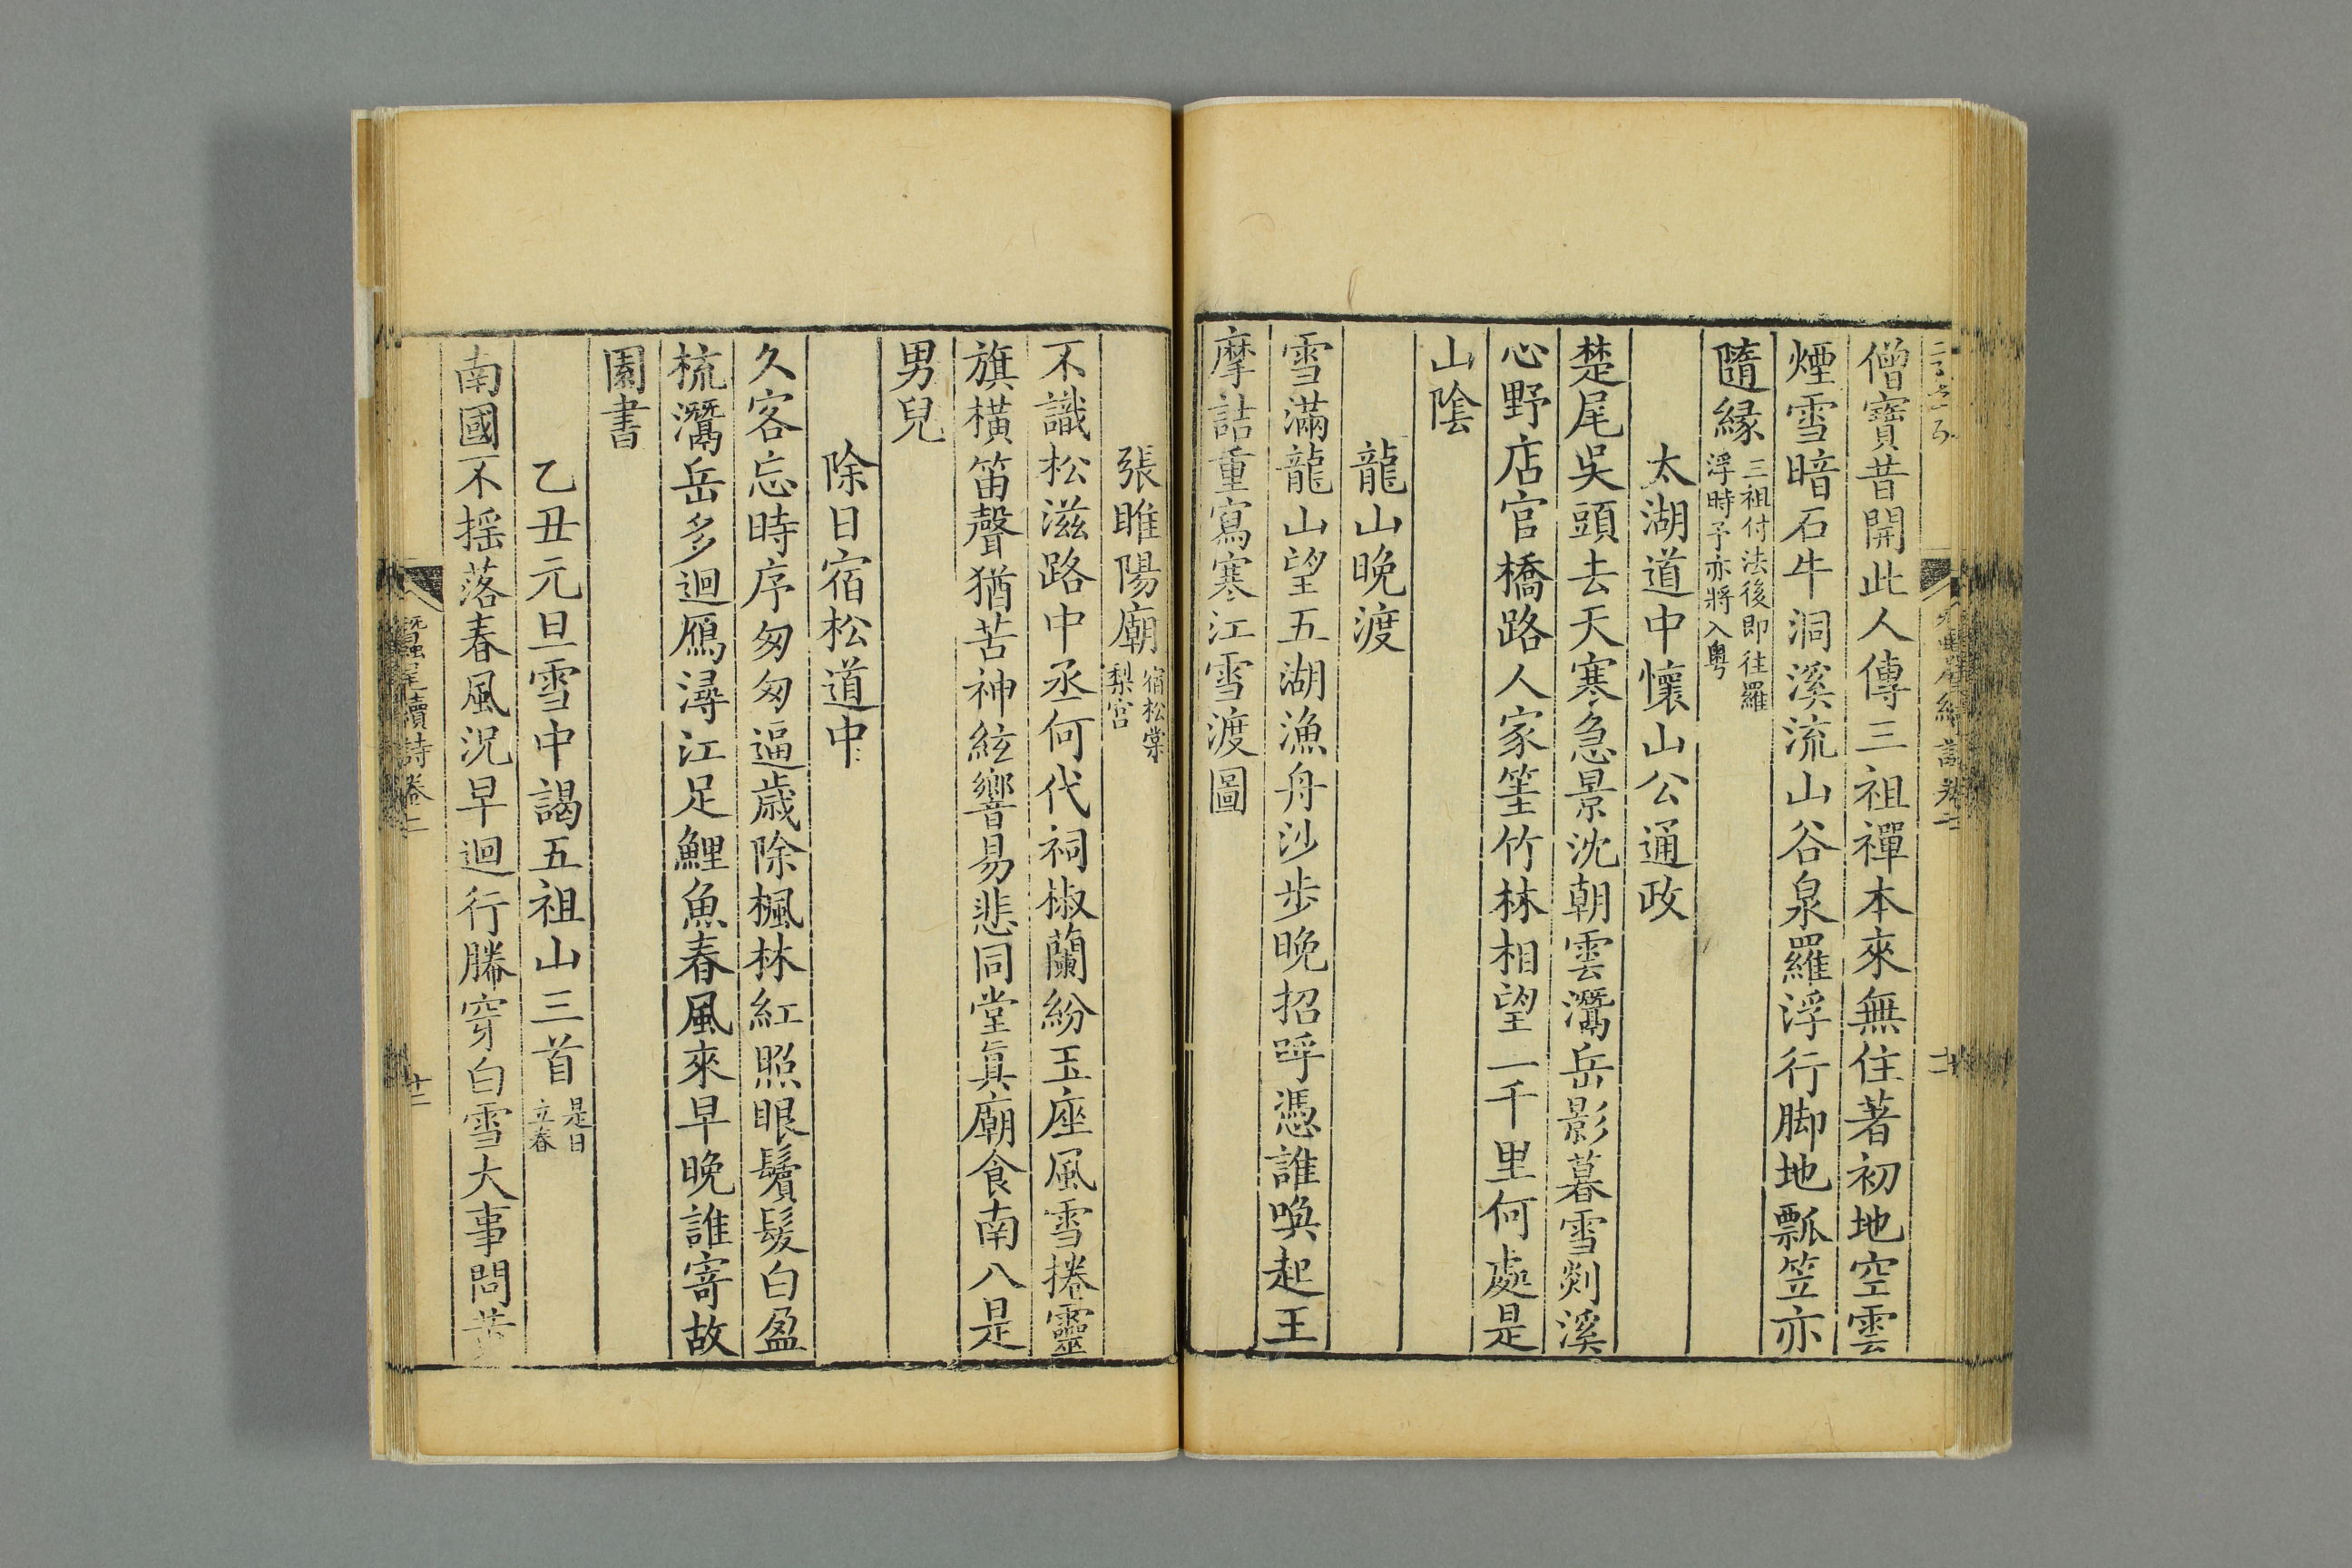 僧寶昔開此人傳三祖禪本來無住著初地空雲
煙雪暗石牛洞溪流山谷泉羅浮行脚地瓢笠亦
隨緣三祖付法後即往羅浮時予亦將入粵
太湖道中懷山公通政
楚尾吳頭去天寒急景沈朝雲灊岳影暮雪剡溪
心野店官橋路人家筀竹林相望一千里何處是
山陰
龍山晚渡
雪滿龍山望五湖漁舟沙步晚招呼憑誰喚起王
摩詰重寫寒江雪渡圖
張睢陽廟宿松棠梨宮
不識松滋路中丞何代祠椒蘭紛玉座風雪捲靈
旗橫笛聲猶苦神絃響易悲同堂眞廟食南八是
男兒
除日宿松道中
久客忘時序匆匆逼歲除楓林紅照眼鬢髮白盈
梳灊岳多迴鴈潯江足鯉魚春風來早晚誰寄故
園書
乙丑元旦雪中謁五祖山三首是日立春
南國不搖落春風況早迴行縢穿白雪大事問黃
蠶尾續詩卷二
十二